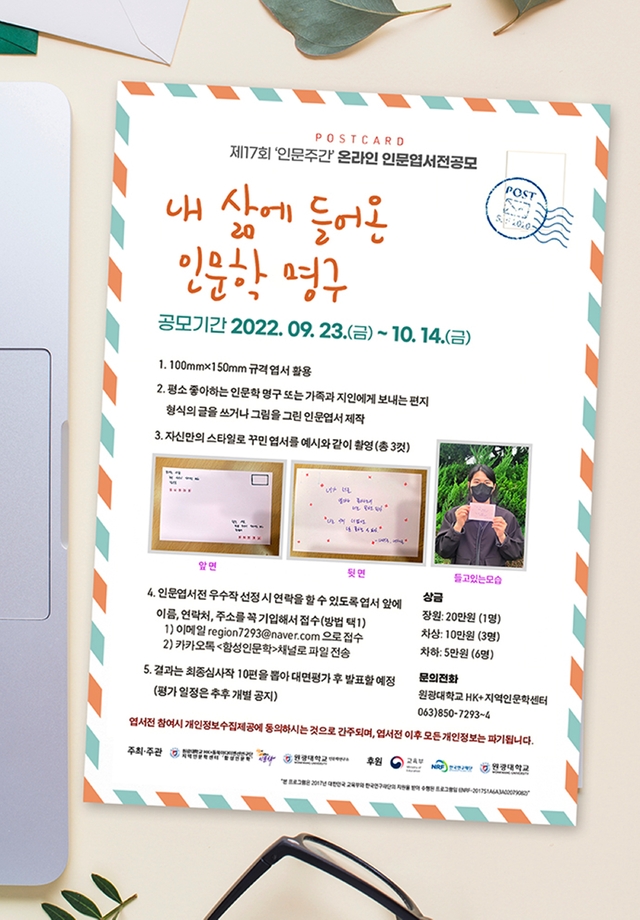 POSTCARD
제17회 '인문주간' 온라인 인문엽서전공모
POST
내 삶에 들어온
인문학 명구
공모기간 2022. 09. 23.(금) ~ 10. 14.(금)
1. 100mm×150mm 규격 엽서 활용
2. 평소 좋아하는 인문학 명구 또는 가족과 지인에게 보내는 편지
형식의 글을 쓰거나 그림을 그린 인문엽서 제작
3. 자신만의 스타일로 꾸민 엽서를 예시와 같이 촬영 (총 3컷)
앞면
뒷면
들고있는모습
4. 인문엽서전 우수작 선정 시 연락을 할 수 있도록 엽서 앞에
이름, 연락처, 주소를 꼭 기입해서 접수(방법 택1)
1) 이메일 region7293@naver.com 으로 접수
2) 카카오톡 <함성인문학>채널로 파일 전송
5. 결과는 최종심사작 10편을 뽑아 대면평가 후 발표할 예정
(평가 일정은 추후 개별 공지)
상금
장원: 20만원 (1명)
차상: 10만원 (3명)
차하: 5만원 (6명)
문의전화
원광대학교 HK+지역인문학센터
063)850-7293~4
엽서전 참여시 개인정보수집제공에 동의하시는 것으로 간주되며, 엽서전 이후 모든 개인정보는 파기됩니다.
주최·주관
지역인문학센터 "함성인문학"
원광대학교
후원
교육부
NRF 한국연구재단
원광대학교
"본 프로그램은 2017년 대한민국 교육부와 한국연구재단의 지원을 받아 수행된 프로그램임 (NRF-2017S1A6A3A02079082)"